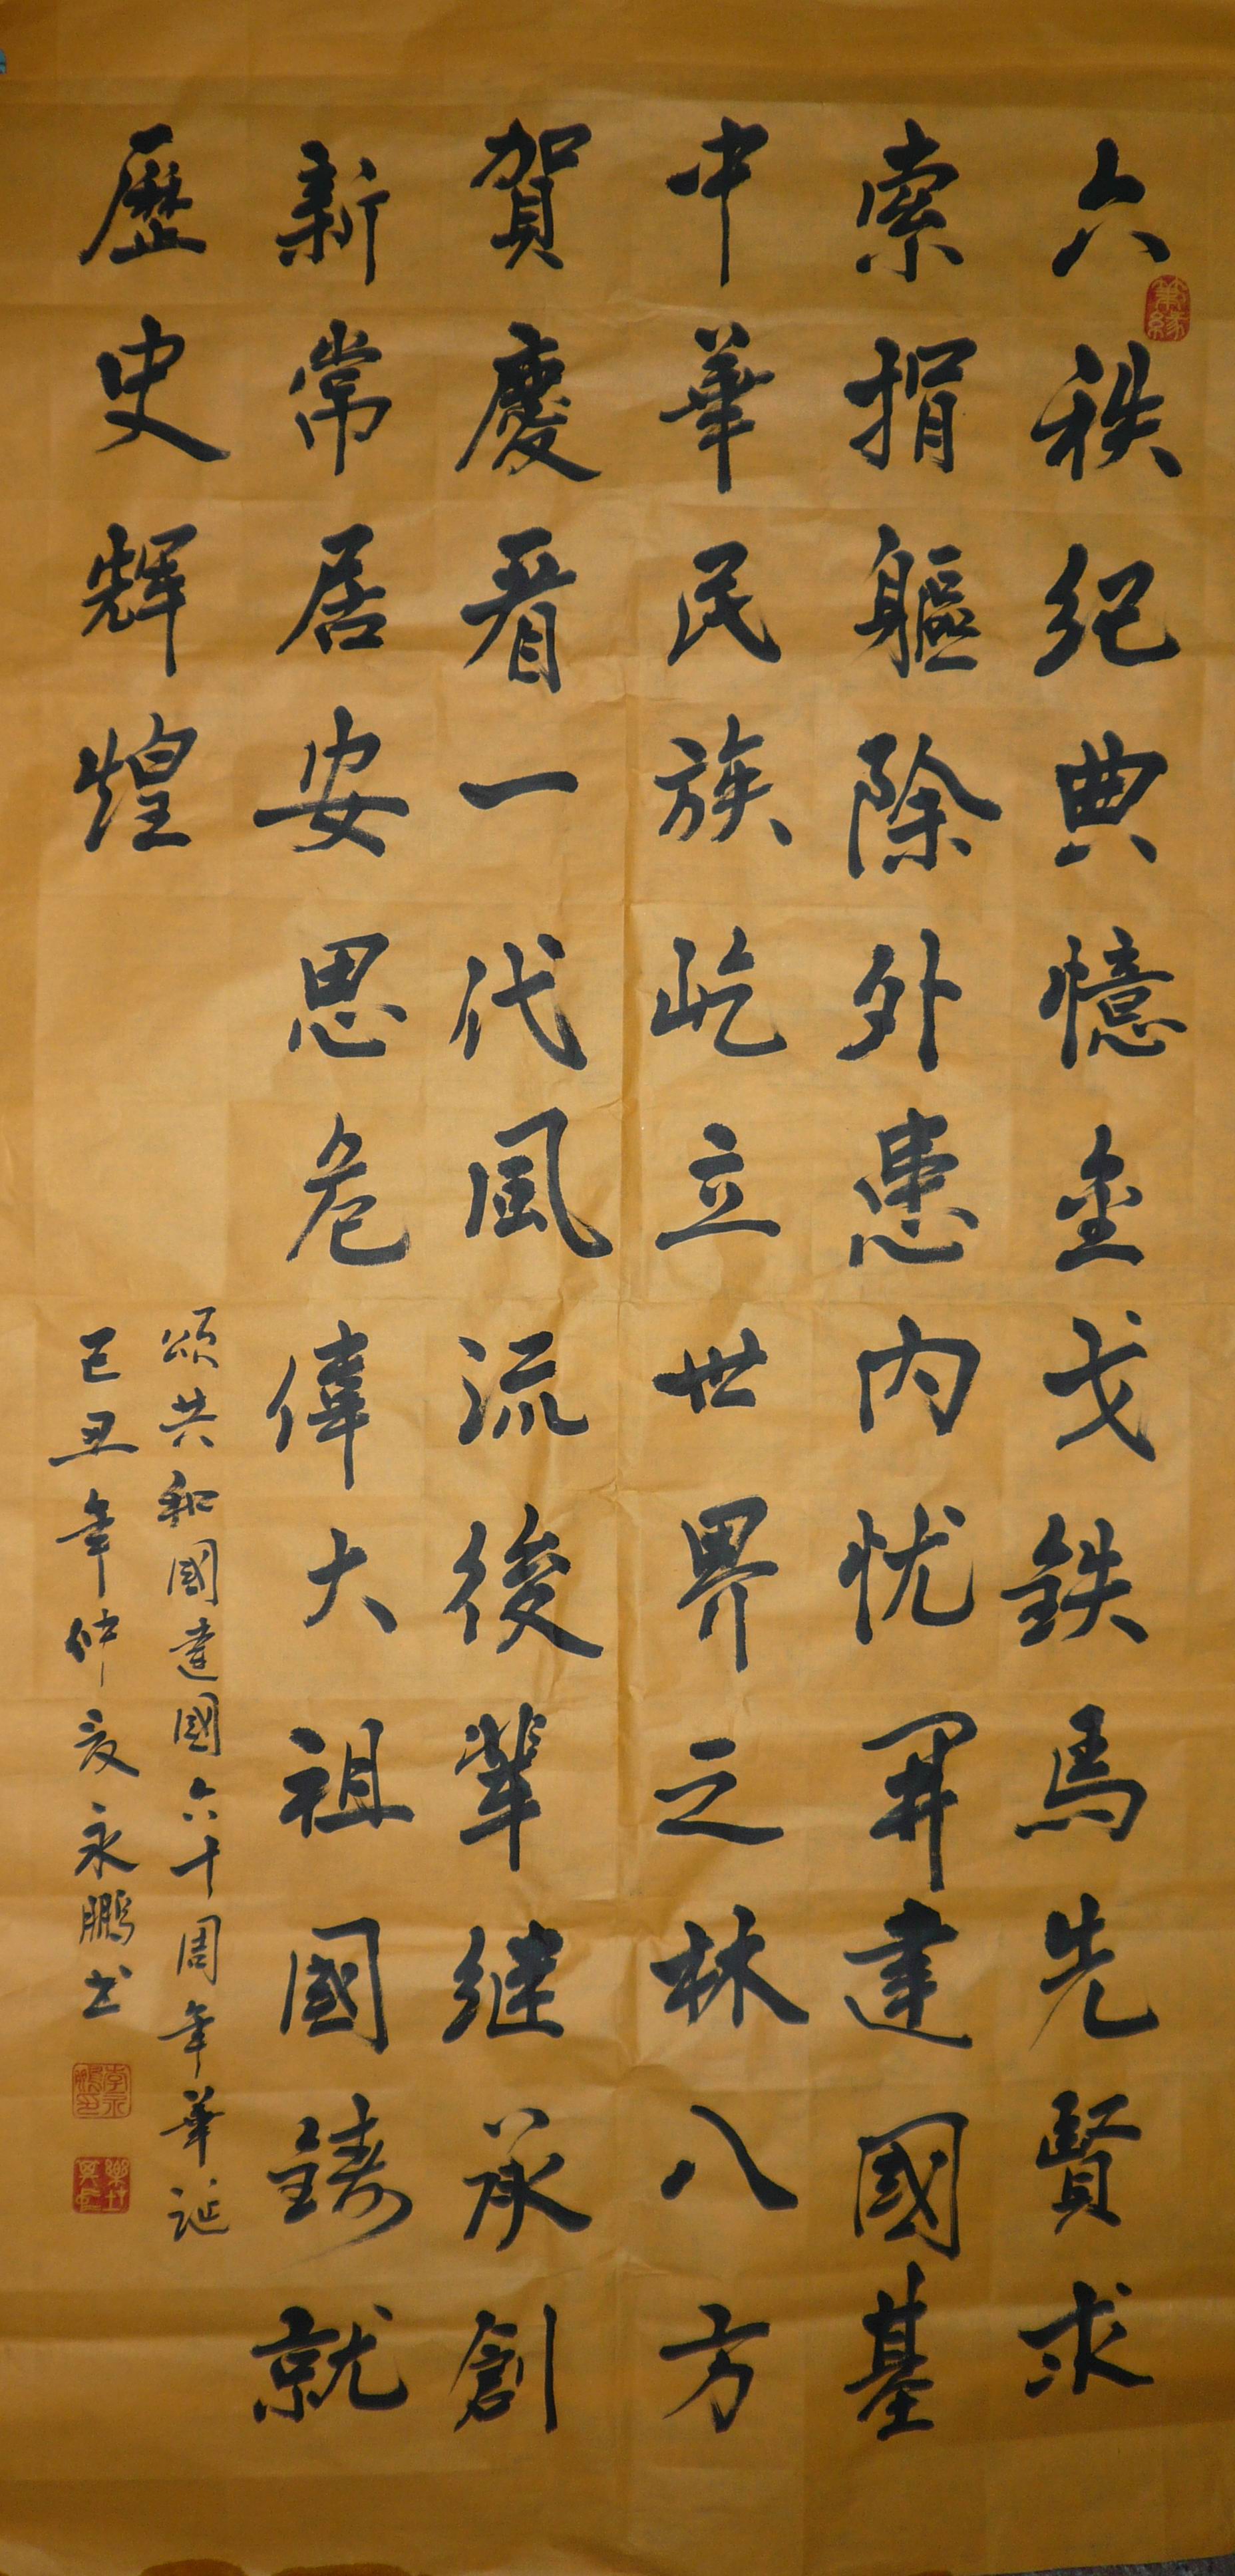 六秩纪典憶金戈鉄馬先賢求
索捐軀除外患内忧开建國基
中華民族屹立世界之林八方
賀慶看一代風流後輩继承創
新常居安思危偉大祖國鑄就
歷史輝煌
頌共和國建國六十周年華誕
己丑年仲夏永鵬书
李永鵬印